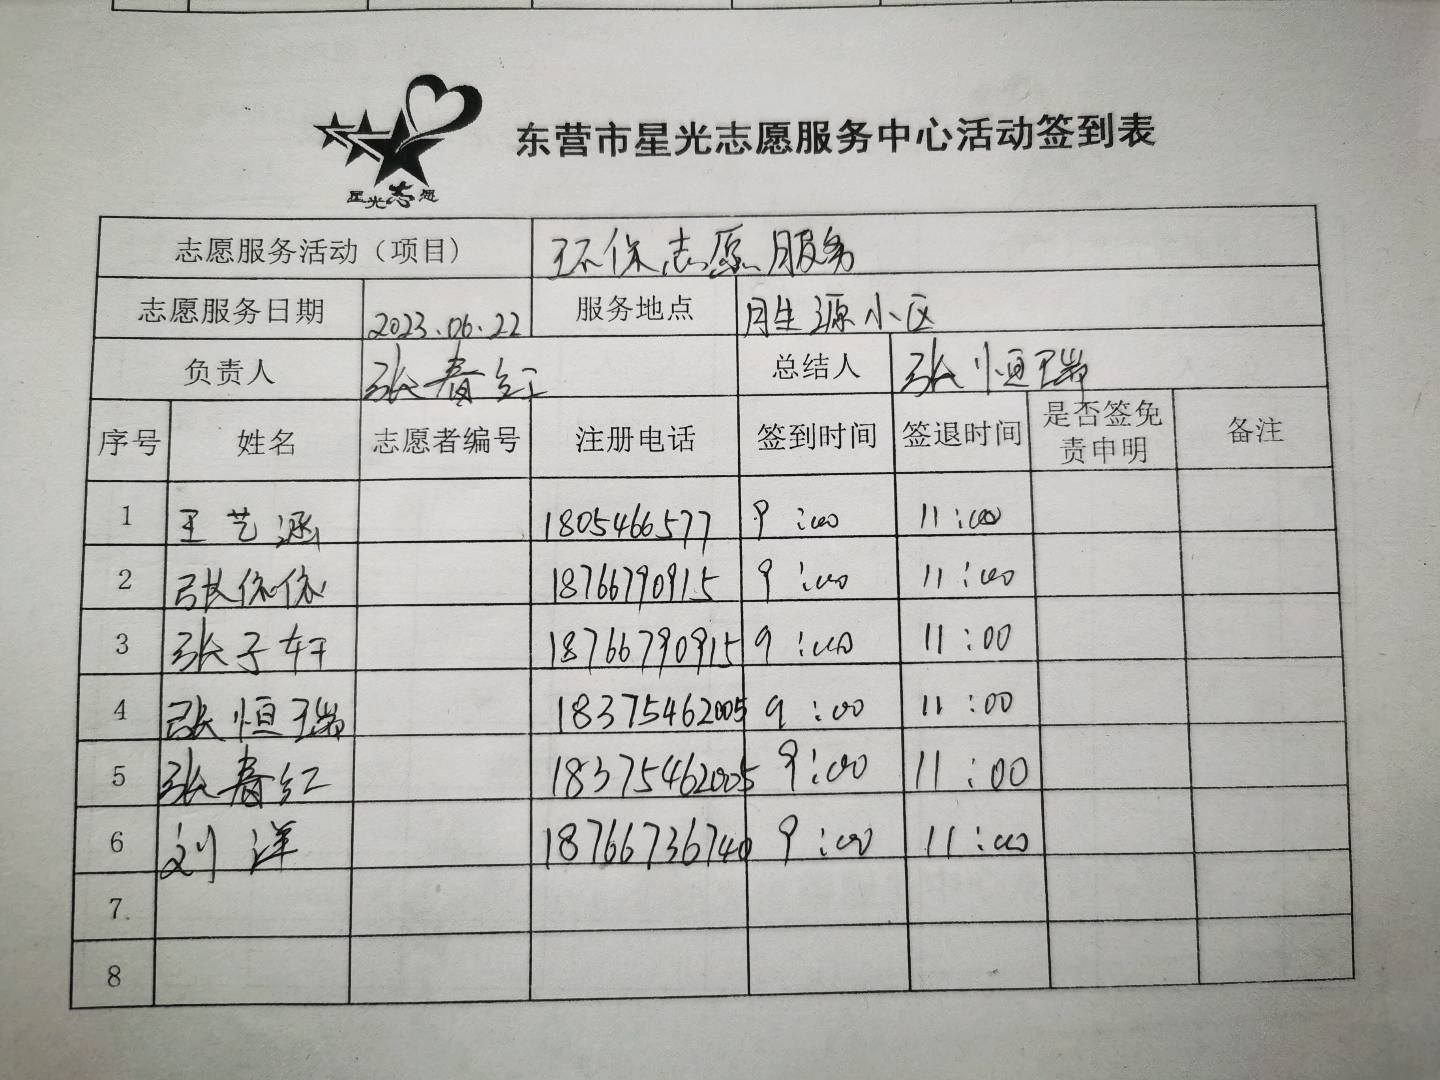 星光志愿
东营市星光志愿服务中心活动签到表
志愿服务活动（项目） 环保志愿服务
志愿服务日期 2023.06.22 服务地点 月生源小区
负责人 张春红 总结人 张恒瑞
序号 姓名 志愿者编号 注册电话 签到时间 签退时间 是否签免责申明 备注
1 王艺涵 1805466577 9:00 11:00
2 张依依 18766790915 9:00 11:00
3 张子轩 18766790915 9:00 11:00
4 张恒瑞 18375462005 9:00 11:00
5 张春红 18375462005 9:00 11:00
6 刘洋 18766736740 9:00 11:00
7
8